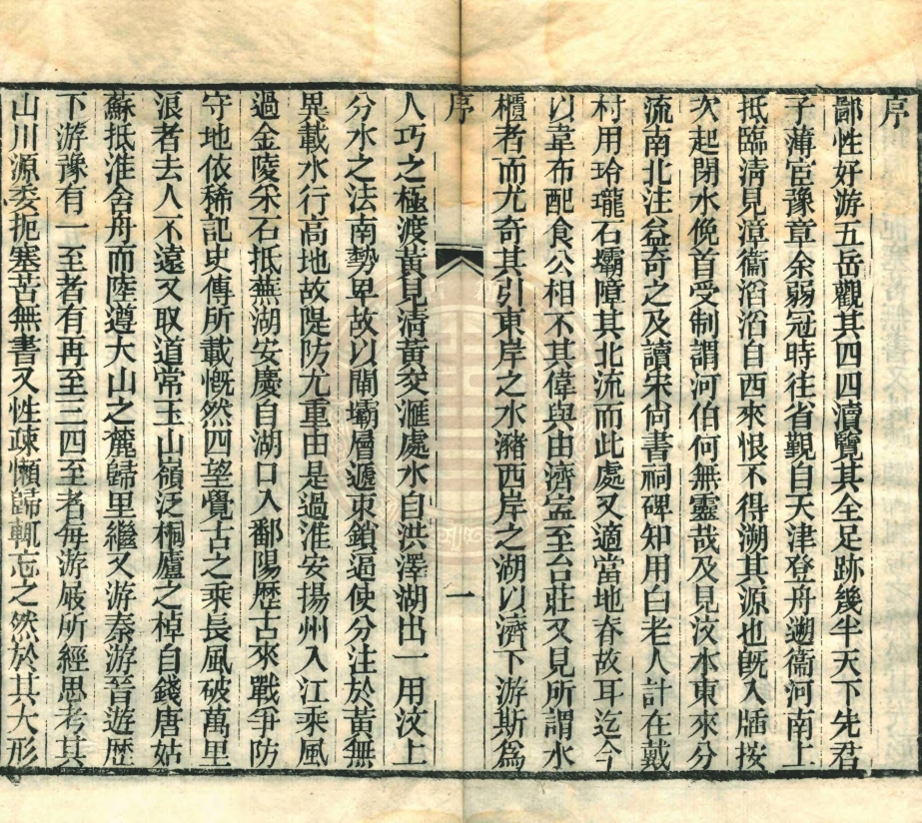 序
鄙性好游五岳觀其四四瀆覽其全足跡幾半天下先君
子薄宦豫章余弱冠時往省覲自天津登舟遡衞河南上
抵臨淸見漳衞滔滔自西來恨不得溯其源也旣入牐按
次起閉水俛首受制謂河伯何無靈哉及見汶水東來分
流南北注益奇之及讀宋尙書祠碑知用白老人計在戴
村用玲瓏石壩障其北流而此處又適當地脊故耳迄今
以韋布配食公相不其偉與由濟寧至台莊又見所謂水
櫃者而尤奇其引東岸之水瀦西岸之湖以濟下游斯爲
序
一
人巧之極渡黃見淸黃交滙處水自洪澤湖出一用汶上
分水之法南勢卑故以閘壩層遞束鎖逼使分注於黃無
異載水行高地故隄防尤重由是過淮安揚州入江乘風
過金陵采石抵蕪湖安慶自湖口入鄱陽歷古來戰爭防
守地依稀記史傳所載慨然四望覺古之乘長風破萬里
浪者去人不遠又取道常玉山嶺泛桐廬之棹自錢唐姑
蘇抵淮舍舟而陸遵大山之麓歸里繼又游秦游晉遊歷
下游豫有一至者有再至三四至者每游嚴所經思考其
山川源委扼塞苦無書又性疎懶歸輒忘之然於其大形